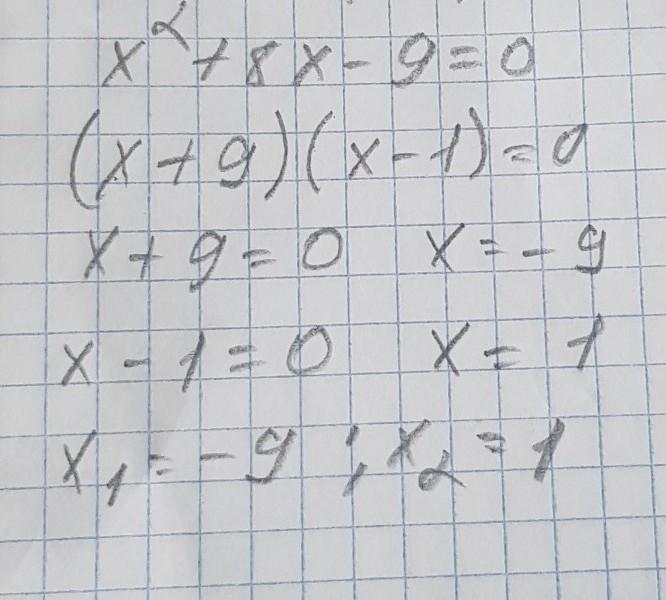 x² + 8x - 9 = 0
(x + 9)(x - 1) = 0
x + 9 = 0 x = - 9
x - 1 = 0 x = 1
x₁ = - 9 ; x₂ = 1